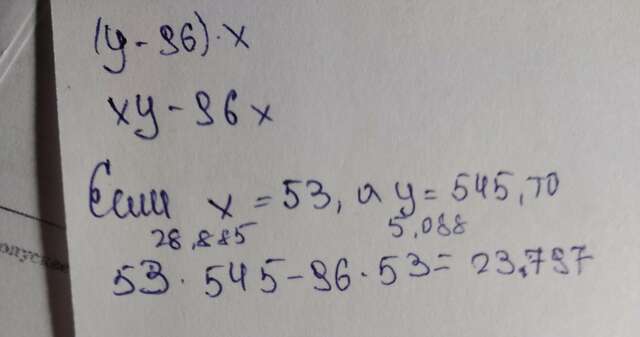 (y - 96) · x
xy - 96 x
Если x = 53, а y = 545, то
28,885 5,088
53 · 545 - 96 · 53 = 23,797